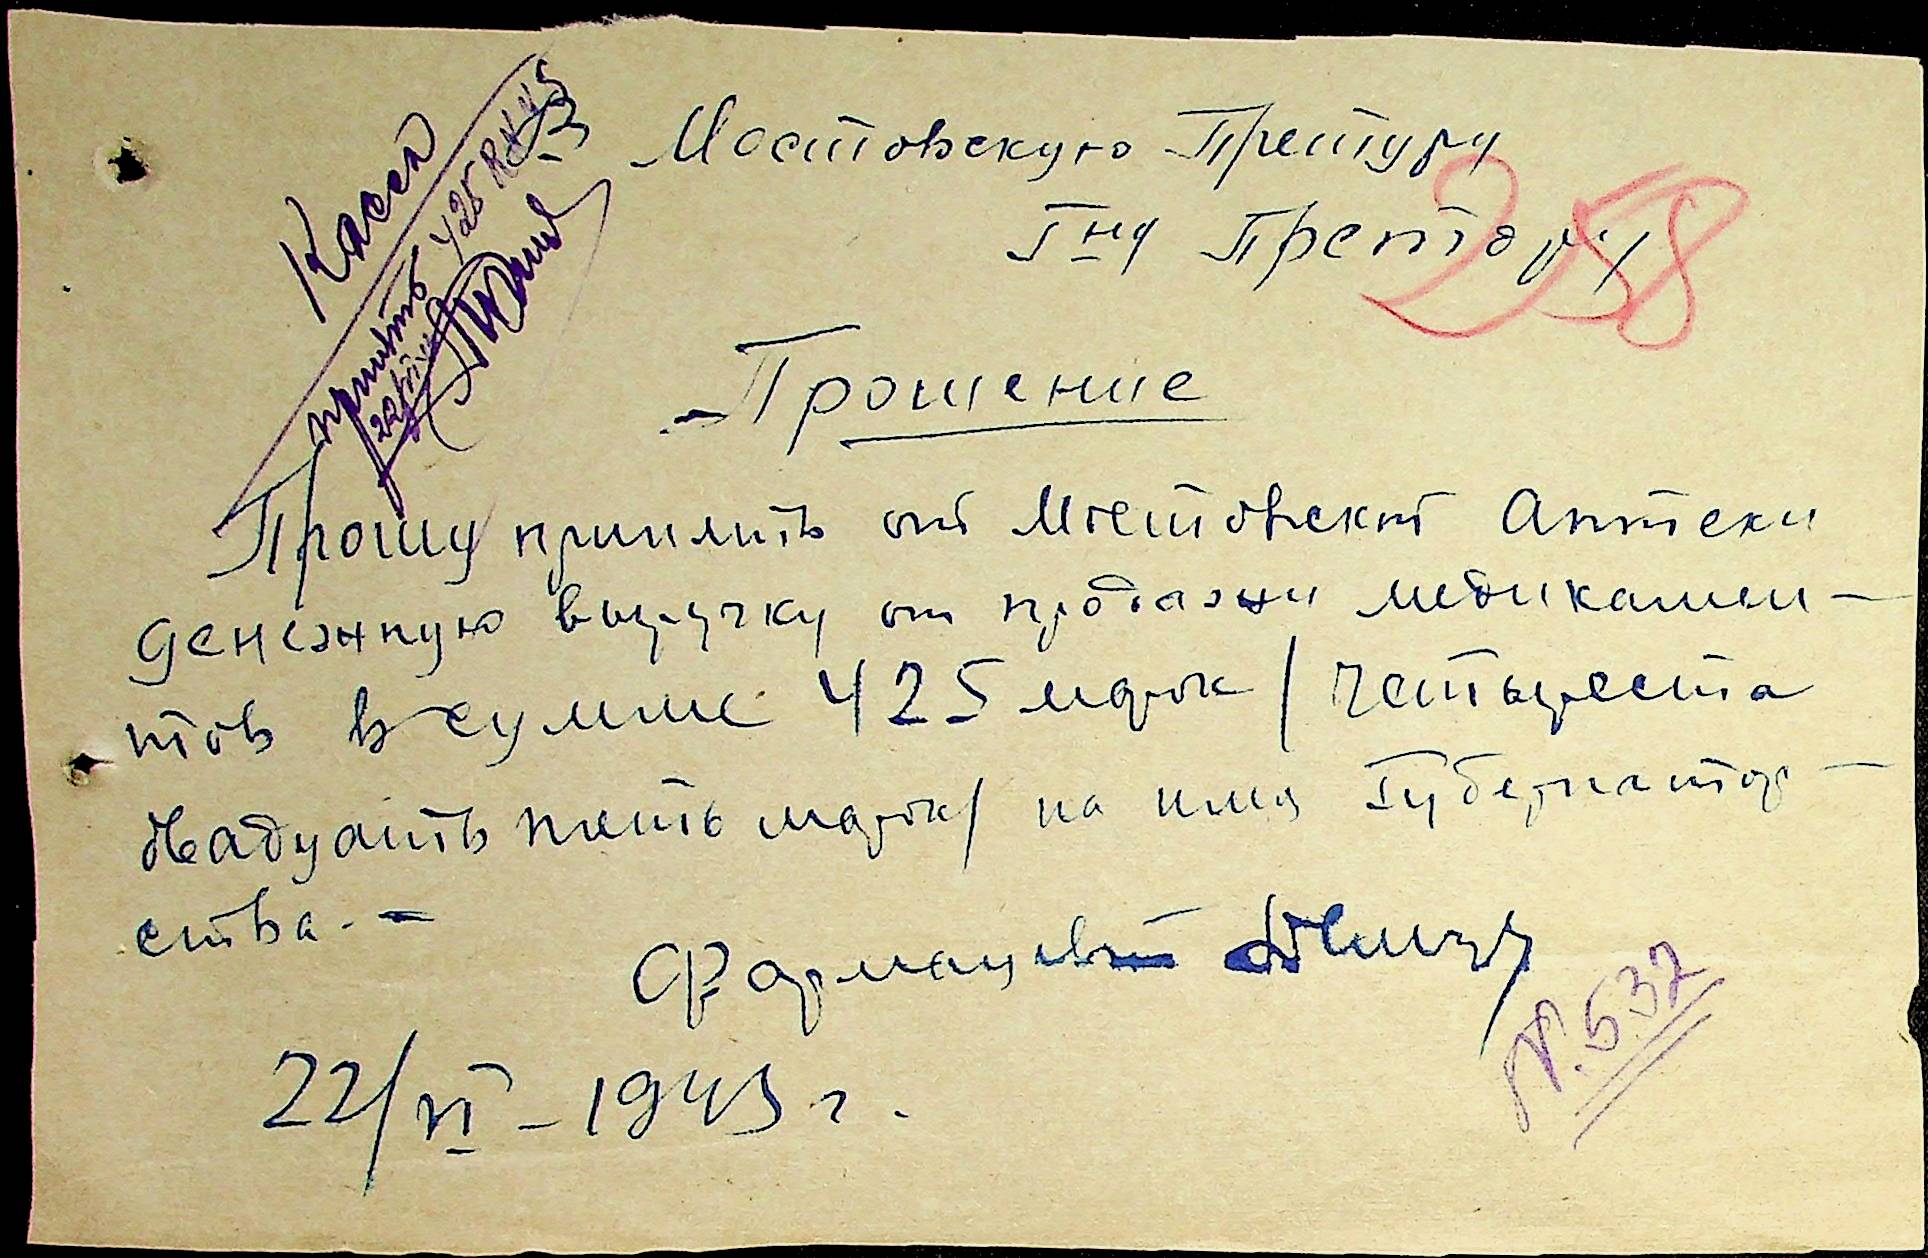 Касса
принять 425 RKMS
22/VI 43
Мостовскую Претуру
Гну Претору
258
Прошение
Прошу принять от Мостовской Аптеки
денежную выручку от продажи медикамен-
тов в сумме 425 марок / Четыреста
двадцать пять марок/ на имя Губернатор-
ства.-
Фармацевт
22/VI - 1943 г.
№. 532